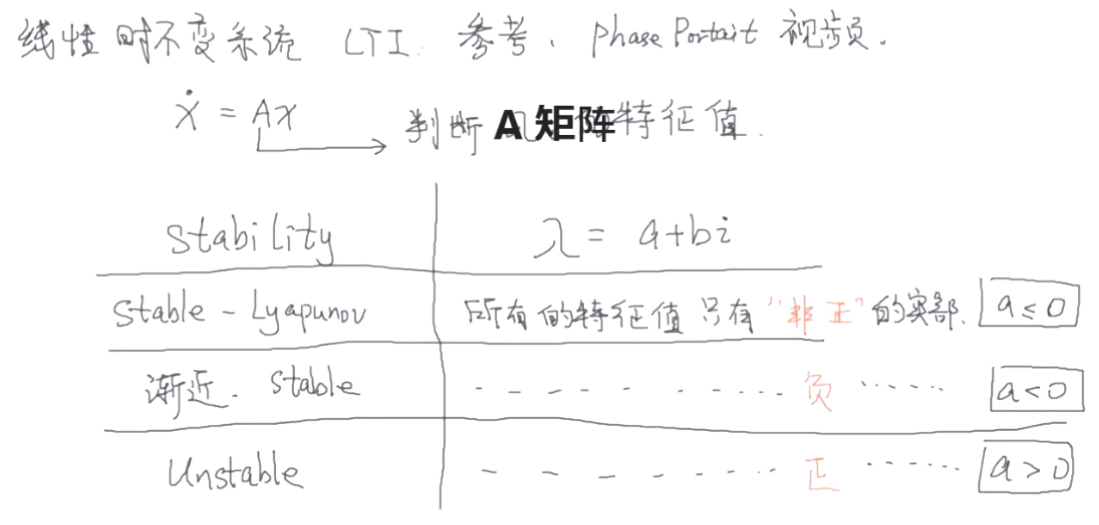 线性时不变系统 LTI. 参考. Phase Portait 视频.
ẋ = Ax
判断 A 矩阵特征值.
Stability λ = a+bi
Stable - Lyapunov 所有的特征值只有 "非正" 的实部. a ≤ 0
渐近. Stable - - - - - - - .... 负 ...... a < 0
Unstable - - - - - - ...... 正 ...... a > 0